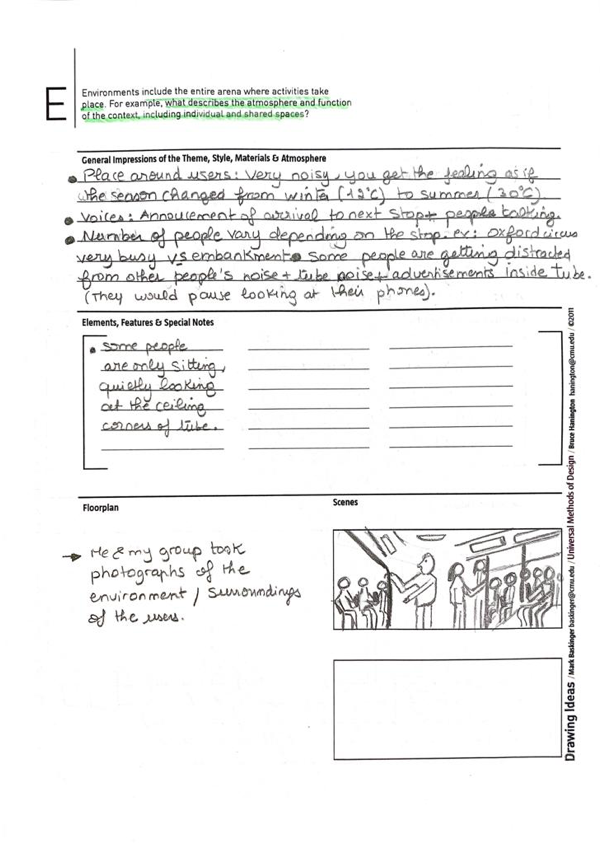 E
Environments include the entire arena where activities take
place. For example, what describes the atmosphere and function
of the context, including individual and shared spaces?
General Impressions of the Theme, Style, Materials & Atmosphere
• Place around users: Very noisy, you get the feeling as if
the season changed from winter (12°C) to summer (30°C)
• Voices: Annoucement of arrival to next stop + people talking.
• Number of people vary depending on the stop. ex: Oxford circus
very busy vs embankment • Some people are getting distracted
from other people's noise + tube noise + advertisements inside tube.
(They would pause looking at their phones).
Elements, Features & Special Notes
• Some people
are only sitting,
quietly looking
at the ceiling
corners of tube.
Floorplan
→ Me & my group took
photographs of the
environment / surroundings
of the users.
Scenes
Drawing Ideas / Mark Baskinger baskinger@cmu.edu / Universal Methods of Design / Bruce Hanington hanington@cmu.edu / ©2011